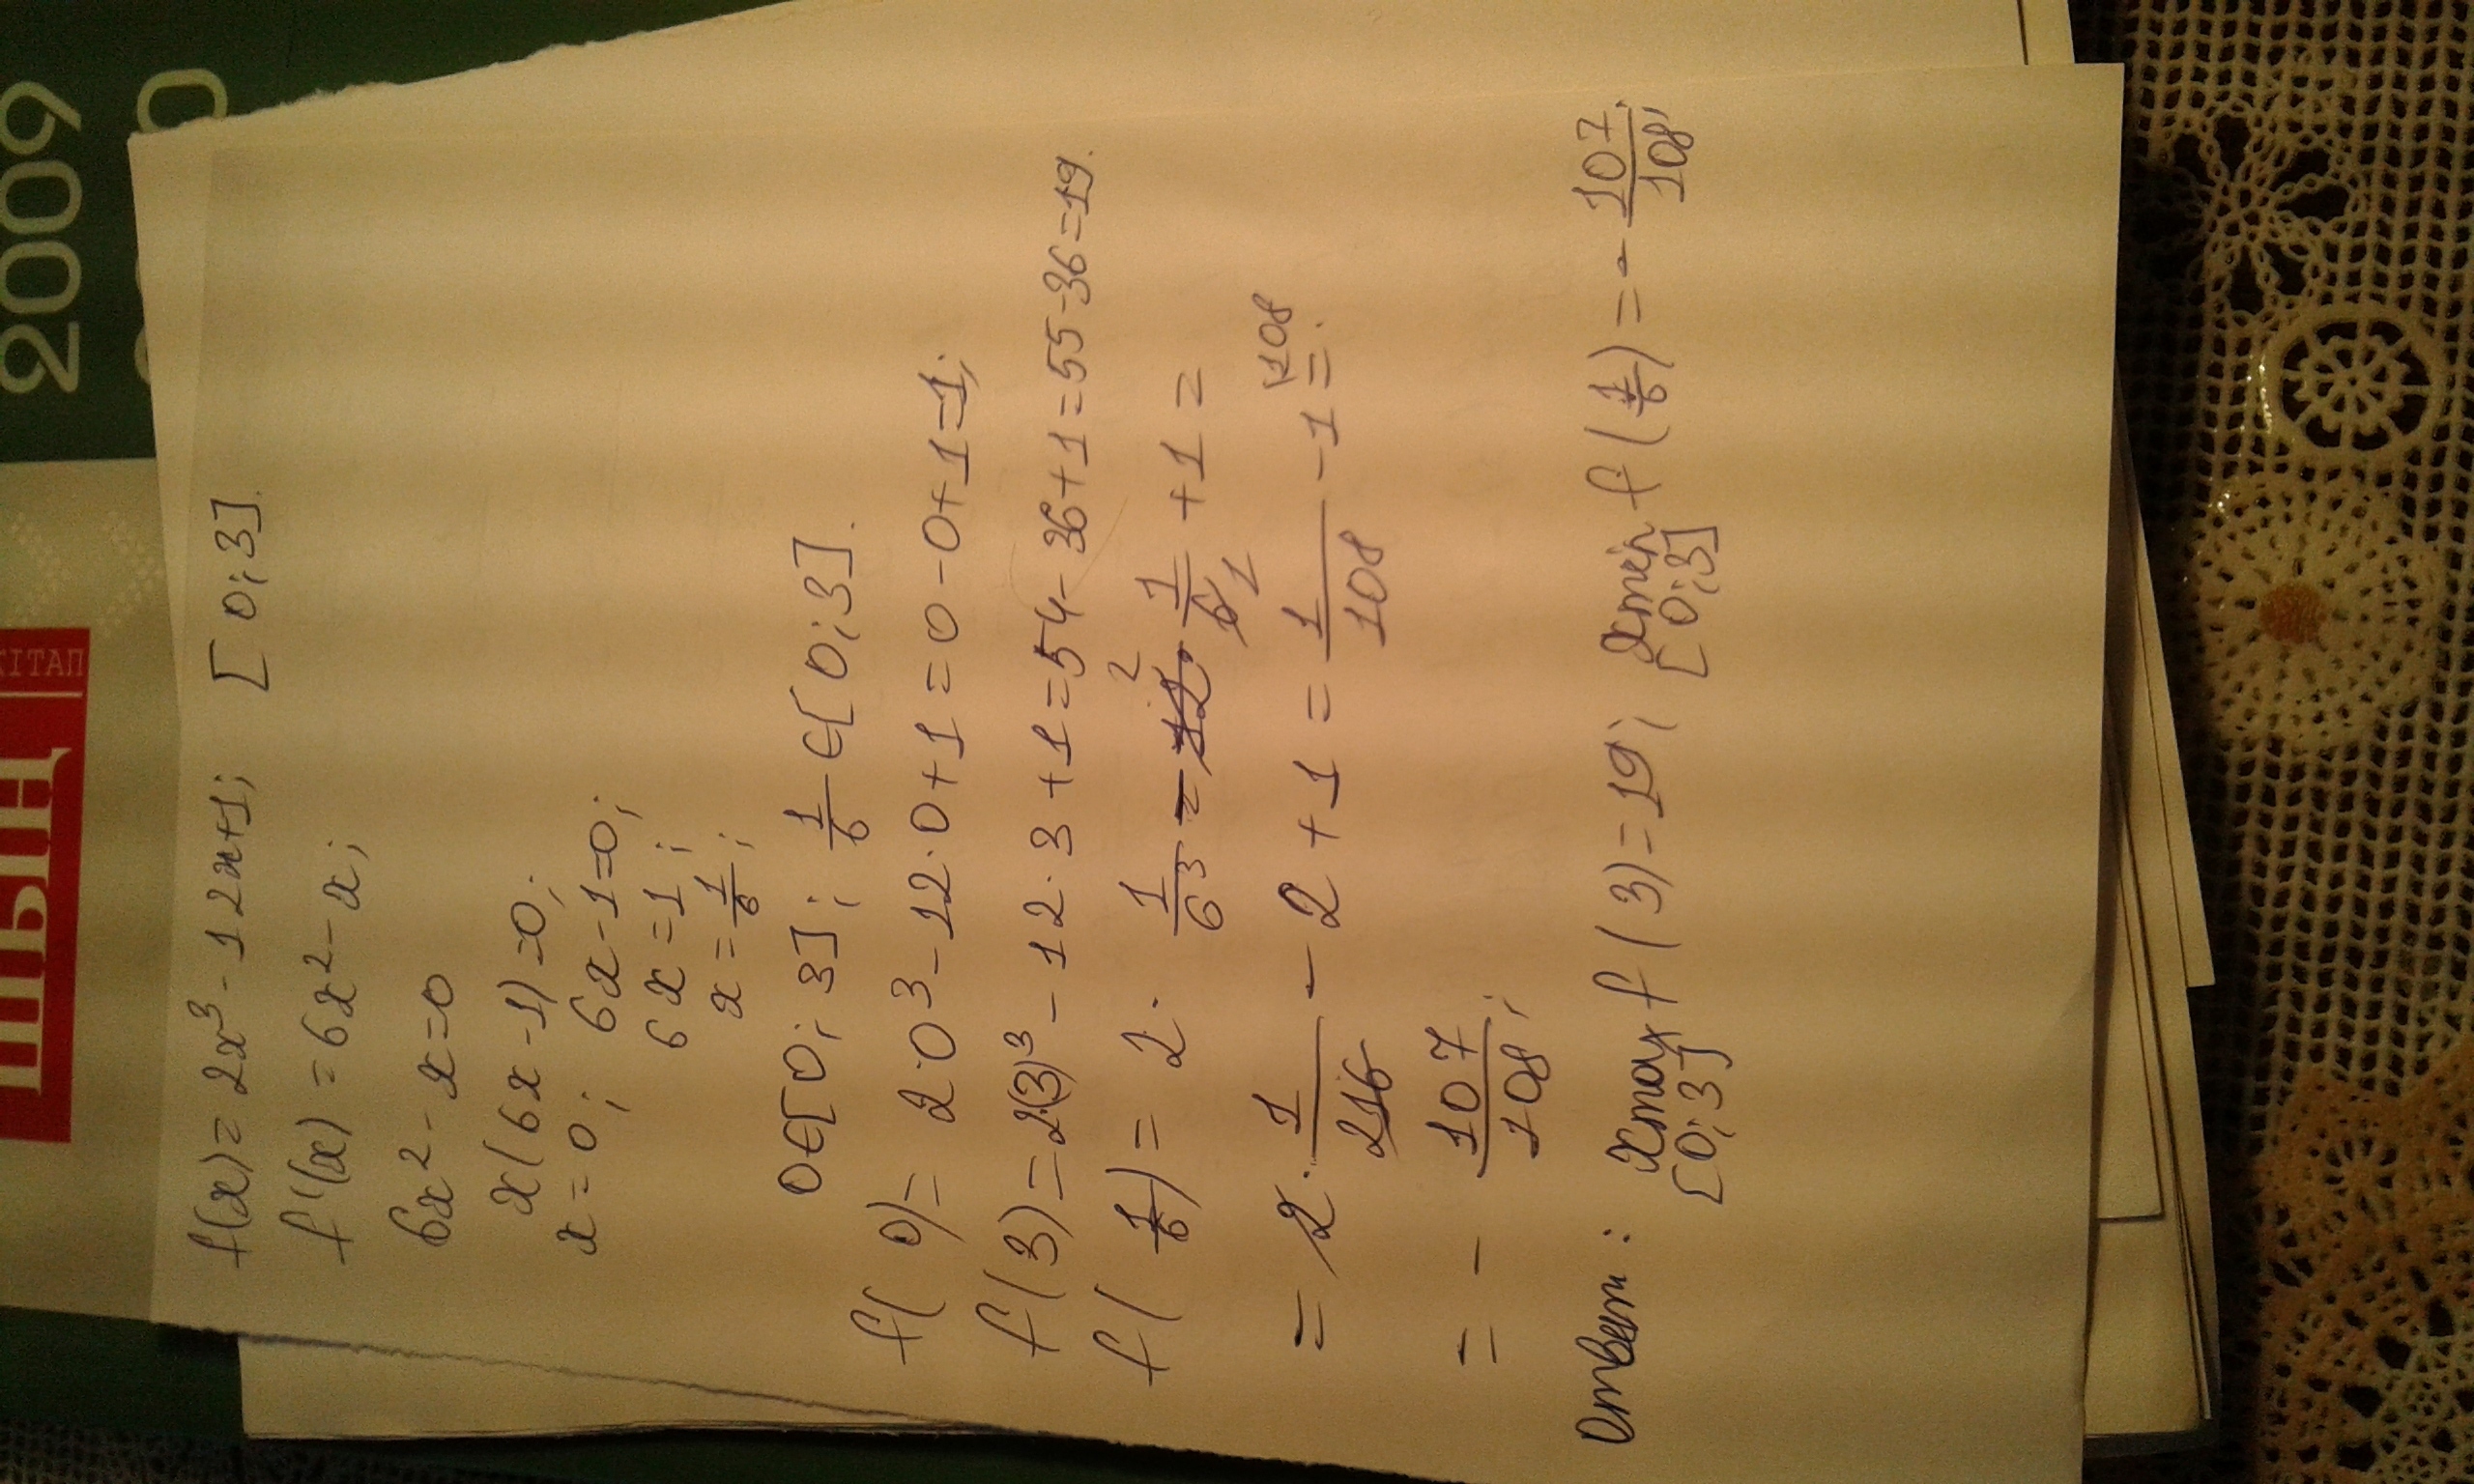 2009
КІТАП
ШЫҢ
f(x) = 2x³ - 12x+1; [0;3].
f'(x) = 6x² - x;
6x² - x = 0
x(6x - 1) = 0;
x = 0; 6x - 1 = 0;
6x = 1;
x = 1/6;
0∈[0; 3]; 1/6 ∈[0;3].
f(0) = 2·0³ - 12·0 + 1 = 0 - 0 + 1 = 1;
f(3) = 2(3)³ - 12·3 + 1 = 54 - 36 + 1 = 55 - 36 = 19.
f(1/6) = 2· 1/6³ - 12· 1/6 + 1 =
= 2· 1/216 - 2 + 1 = 1/108 - 1 =
= - 107/108;
Ответ: xmax f(3) = 19; xmin f(1/6) = - 107/108;
[0;3] [0;3]